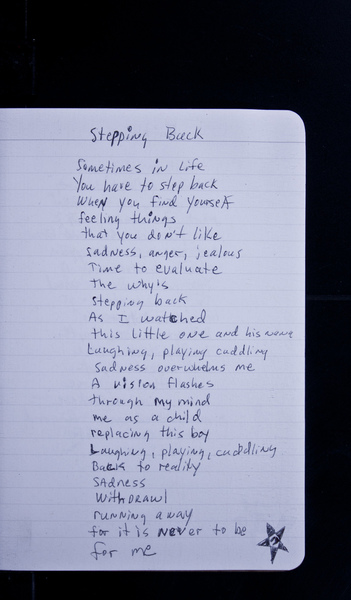 Stepping Back
Sometimes in Life
You have to step back
When you find yourself
feeling things
that you don't like
sadness, anger, jealous
Time to evaluate
the why's
stepping back
As I watched
this little one and his nana
Laughing, playing cuddling
sadness overwhelms me
A vision flashes
through my mind
me as a child
replacing this boy
Laughing, playing, cuddling
Back to reality
SADNESS
WithDrawl
running away
for it is never to be
for me